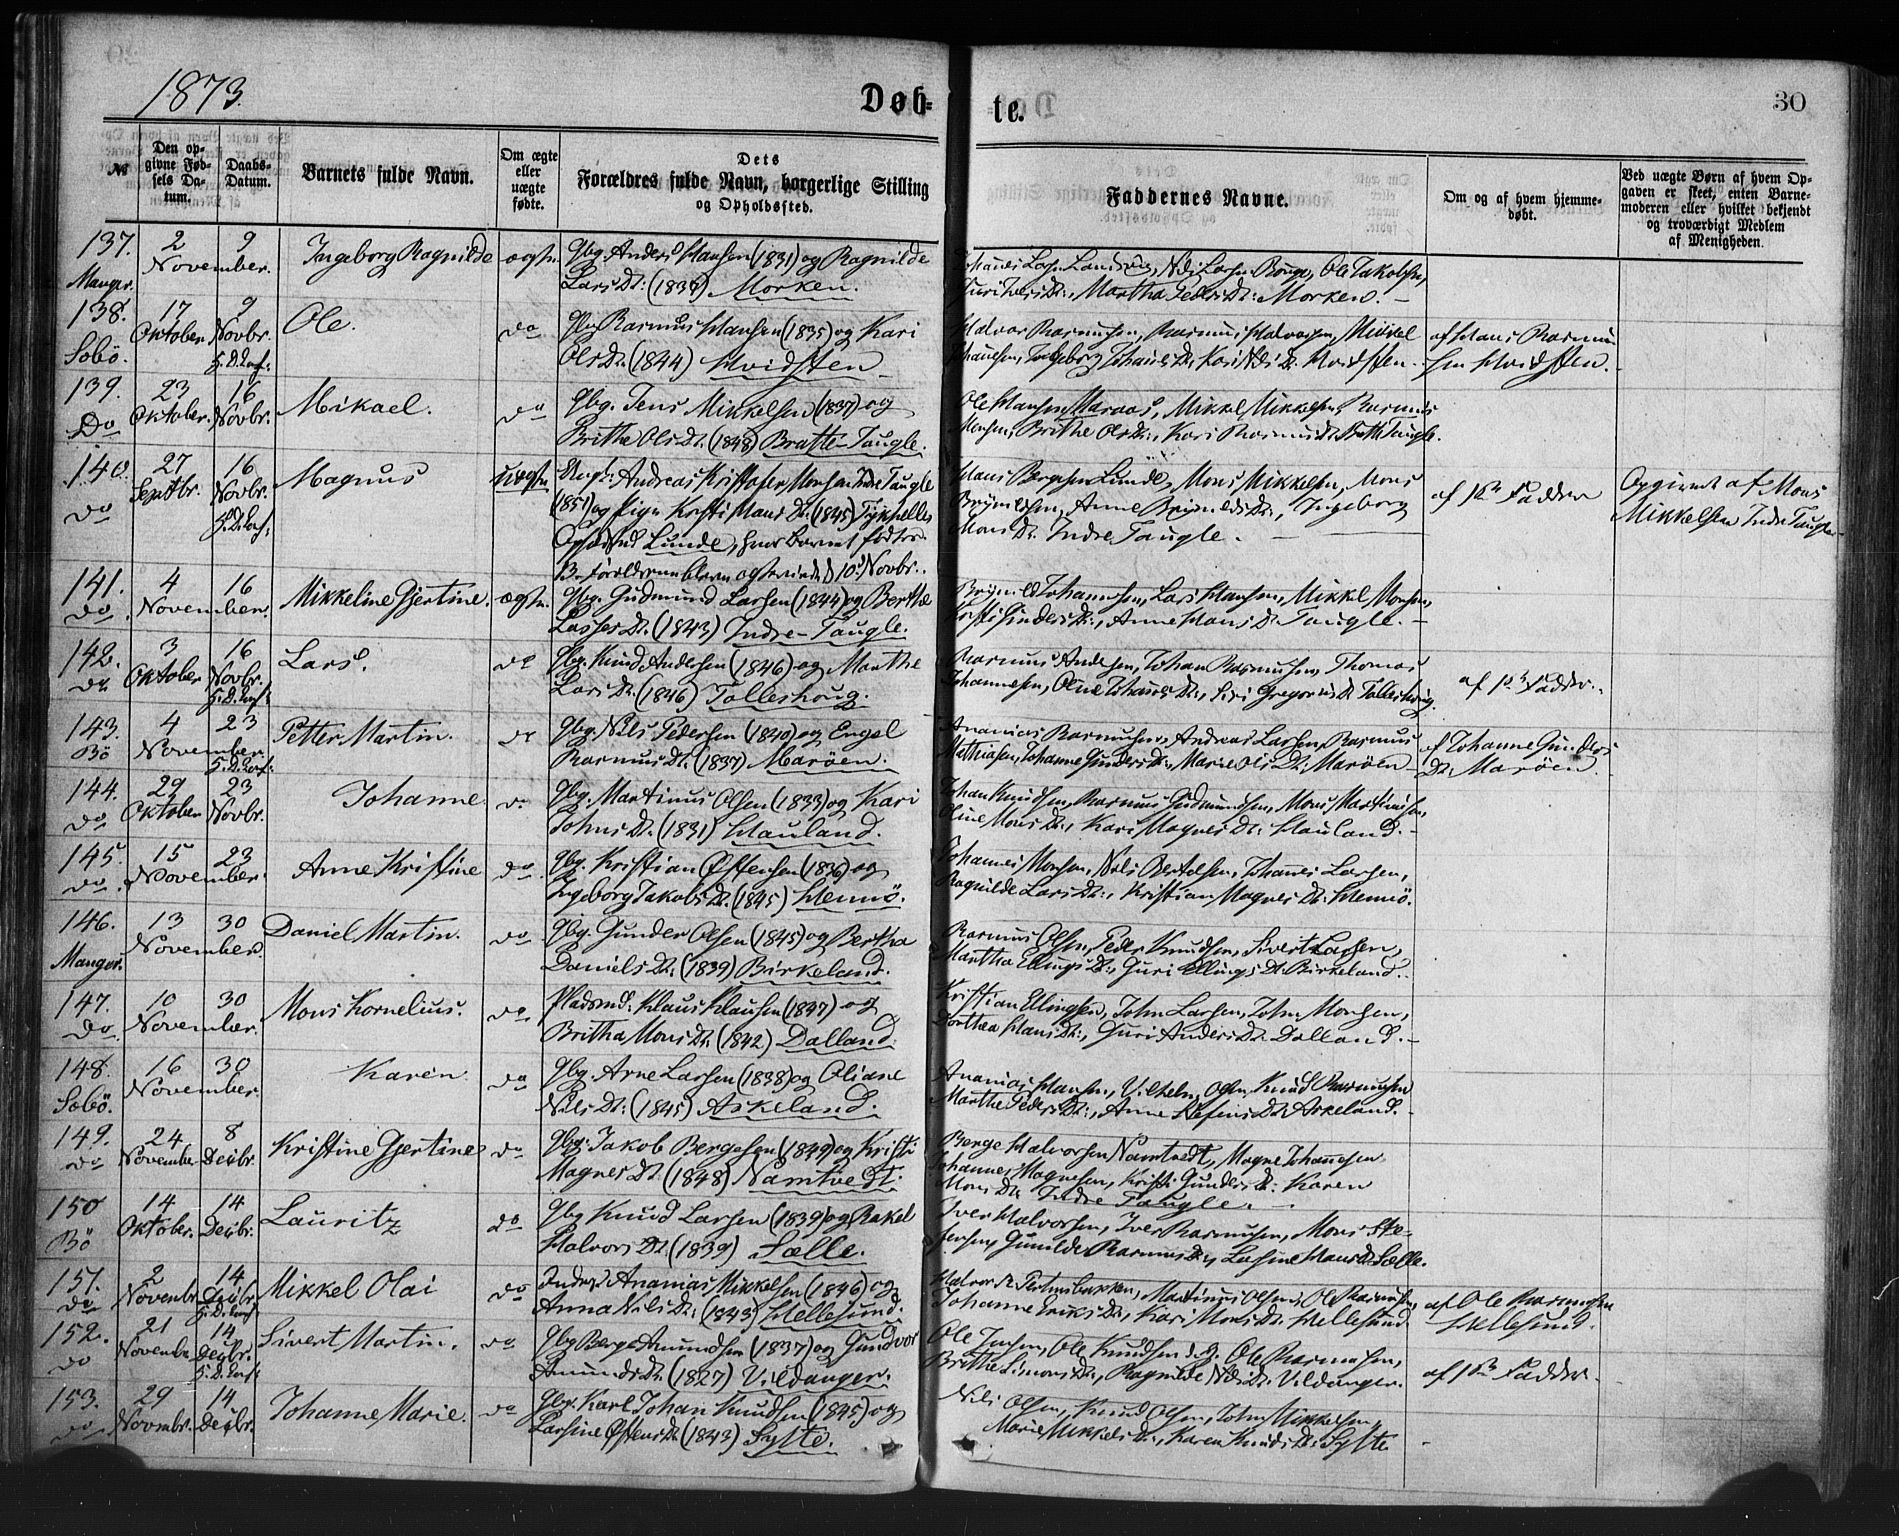 1873.
Døb-
te.
30
№
Den op-
givne Fød-
sels Da-
tum.
Daabs-
Datum.
Barnets fulde Navn.
Om ægte
eller
uægte
fødte.
Dets
Forældres fulde Navn, borgerlige Stilling
og Opholdssted.
Faddernes Navne.
Om og af hvem hjemme-
døbt.
Ved uægte Børn af hvem Op-
gaven er skeet, enten Barne-
moderen eller hvilket bekjendt
og troværdigt Medlem
af Menigheden.
137. Manger.
2 9 November.
Ingeborg Ragnilde
ægte.
Gbg. Anders Hansen (1831) og Ragnilde
Lars Dt: (1836) Morken.
Johannes Larsen Nils Larsen Ole Jakobsen,
Guri Dt:, Martha Peders Dt: Morken. -
138. Sebö.
17 Oktober
9 Novbr.
Ole.
do
Gbg. Rasmus Hansen (1835) og Kari
Ols Dt. (1844) Hvidsten
Halvor Rasmussen, Rasmus Halvorsen, Mikkel
Johannesen, Ingeborg Johannes Dt., Kari Nils Dt. Hvidsten.
af Hans Rasmus-
sen Hvidsten.
139. Do
23 Oktober.
16 Novbr.
Mikael.
do
Gbg. Jens Mikkelsen (1837) og
Brithe Ols Dt. (1848) Bratte-Taugle.
Ole Hansen Maraas, Mikkel Mikkelsen, Rasmus
Monsen, Brithe Ols Dt., Kari Rasmus Dt. Taugle.
140. do
27 Septbr.
16 Novbr.
Magnus
Uægte
Ungk: Andreas Kristofer Monsen Indre Taugle
(1851) og Pige Kristi Hans Dt. (1845)
Lunde, hvor Barnet födtes.
B. Forældrene bleve ægteviede d. 10d Novbr.
Hans Bergesen Lunde, Mons Mikkelsen, Mons
Brynildsen, Anne Brynilds Dt., Ingeborg
Mons Dt. Indre Taugle. -
af 1ste Fadder
Opgivet af Mons
Mikkelsen Indre Taugle
141. do.
4 16 November.
Mikkeline Gjertine.
ægte.
Gbg. Gudmund Larsen (1844) og Berthe
Lasses Dt. (1843) Indre-Taugle.
Brynild Johannesen, Lars Hansen, Mikkel Monsen,
Kristi Gunders Dt., Anne Hans Dt. Taugle. -
142. do
3 Oktober
16 Novbr.
Lars.
do
Gbg. Knud Andersen (1846) og Marthe
Lars Dt. (1846) Tolleshoug.
Rasmus Andersen, Johan Rasmussen, Thomas
Johannesen, Oline Johannes Dt., Siri Gregorius Dt. Tolleshoug.
af 1ste Fadder.
143. Bö
4 23 November.
Petter Martin.
do
Gbg. Nils Pedersen (1840) og Engel
Rasmus Dt. (1837) Maröen.
Ananias Rasmussen, Andreas Larsen, Rasmus
Mathiasen, Johanne Gunders Dt., Marie Ols Dt. Maröen -
af Johanne Gunders
Dt. Maröen.
144. do
29 Oktober
23 Novbr.
Johanne
do
Gbg. Martinus Olsen (1833) og Kari
Johns Dt. (1831) Hauland.
Johan Knudsen, Rasmus Gudmundsen, Mons Martinussen,
Oline Mons Dt., Kari Magnes Dt. Hauland. -
145. do.
15 23 November.
Anne Kristine
do.
Gbg. Kristian Østensen (1836) og
Ingeborg Jakobs Dt. (1845) Hennö.
Johannes Monsen, Nils Bertelsen, Johannes Larsen,
Ragnilde Lars Dt., Kristian Magnes Dt. Hennö.
146. Manger.
13 30 November.
Daniel Martin.
do
Gbg. Gunder Olsen (1845) og Bertha
Daniels Dt. (1839) Birkeland.
Rasmus Olsen, Peder Knudsen, Sivert Larsen,
Martha Ellings Dt., Guri Ellings Dt. Birkeland. -
147. do.
10 30 November.
Mons Kornelius.
do.
Pladsmd: Klaus Klausen (1847) og
Britha Mons Dt. (1842) Dalland.
Kristian Ellingsen, John Larsen, John Monsen,
Dorthea Hans Dt., Guri Anders Dt. Dalland. -
148. Sebö.
16 30 November.
Karen
do
Gbg. Arne Larsen (1838) og Oliane
Nils Dt: (1845) Askeland.
Ananias Hansen, Vilhelm Olsen, Knud Rasmussen
Marthe Peders Dt., Anne Stefens Dt. Askeland. -
149. do
24 November
8 Decbr.
Kristine Gjertine
do
Gbg. Jakob Bergesen (1849) og Kristi
Magnes Dt. (1848) Namtvedt.
Berge Halvorsen Namtvedt, Magne Johannesen,
Johannes Magnesen, Kristi Gunders Dt. Karen
Mons Dt. Indre Taugle. -
150 Bö
14 Oktober.
14 Decbr.
Lauritz
do
Gbg Knud Larsen (1839) og Rakel
Halvors Dt. (1839) Sælle.
Iver Halvorsen, Iver Rasmussen, Mons Ste-
fensen, Gunilde Rasmus Dt., Larsine Hans Dt. Sælle.
151. do
2 Novembr.
14 Decbr.
Mikkel Olai
do
Inders. Ananias Mikkelsen (1846) og
Anna Nils Dt. (1843) Hellesund.
Halvor Martinus Olsen, Ole Rasmussen,
Johanne Eriks Dt., Kari Mons Dt. Hellesund.
af Ole Rasmussen
Hellesund.
152. do
21 Novembr.
14 Decbr.
Sivert Martin.
do
Gbg Berge Amundsen (1837) og Gundvor
Amunds Dt. (1827) Vildanger.
Ole Jensen, Ole Knudsen d.y. Ole Rasmussen,
Brithe Simons Dt., Ragnilde Nils Dt. Vildanger.
af 1ste Fadder.
153. do
29 Novmbr.
14 Decbr.
Johanne Marie.
do
Gbg. Karl Johan Knudsen (1845) og
Larsine Østens Dt. (1843) Sylte.
Nils Olsen, Knud Olsen, John Mikkelsen,
Marie Mikkels Dt., Karen Knuds Dt. Sylte